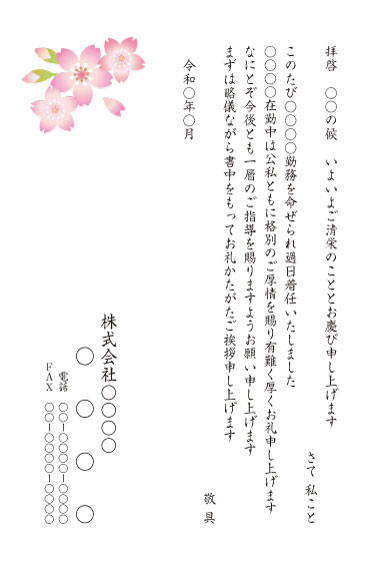 拝啓　○○の候　いよいよご清栄のこととお慶び申し上げます
さて 私こと
このたび○○○○勤務を命ぜられ過日着任いたしました
○○○○在勤中は公私ともに格別のご厚情を賜り有難く厚くお礼申し上げます
なにとぞ今後とも一層のご指導を賜りますようお願い申し上げます
まずは略儀ながら書中をもってお礼かたがたご挨拶申し上げます
敬 具
令和○年○月
株式会社○○○○
○　○　○　○
電話　○○−○○○○−○○○○
ＦＡＸ　○○−○○○○−○○○○